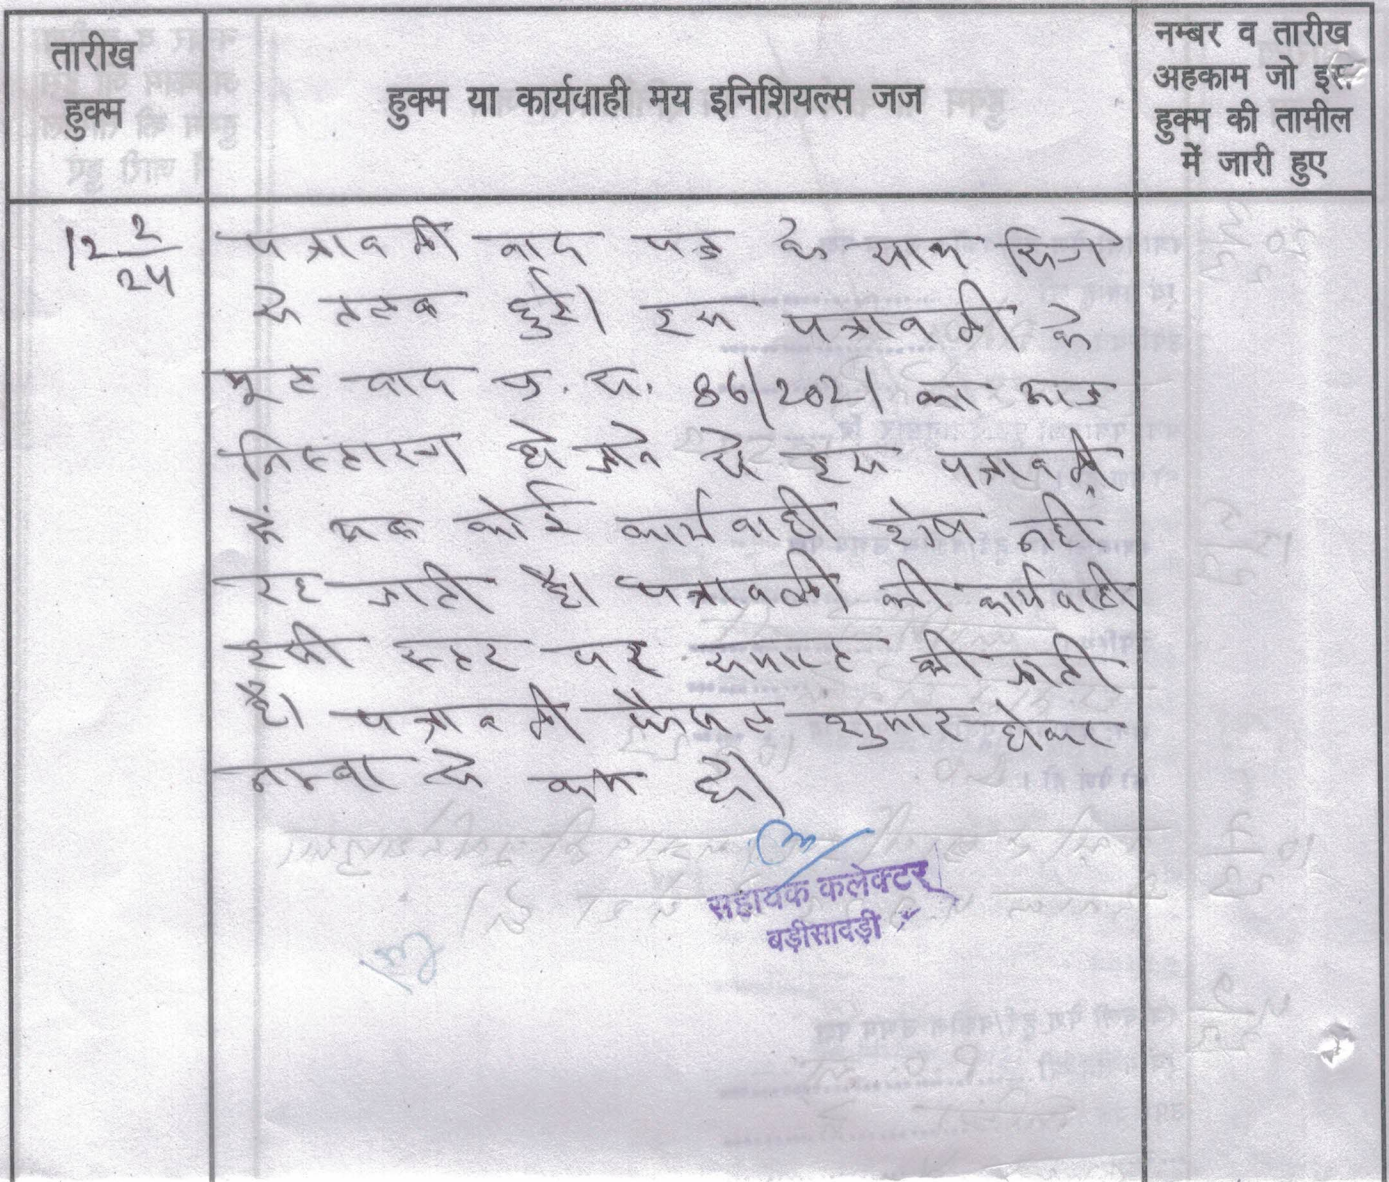 तारीख
हुक्म
हुक्म या कार्यवाही मय इनिशियल्स जज
नम्बर व तारीख
अहकाम जो इस
हुक्म की तामील
में जारी हुए
12 2/24
पत्रावली वाद
से तलब हुई। इस पत्रावली के
मूल वाद प्र. सं. 86/2021 का आज
निस्तारण हो जाने से इस पत्रावली
में अब कोई कार्यवाही शेष नही
रह जाती है। पत्रावली की कार्यवाही
इसी स्टर पर समाप्त की जाती
है। पत्रावली फैसल शुमार होकर
नम्बर से कम हो।
सहायक कलेक्टर
बड़ीसादड़ी